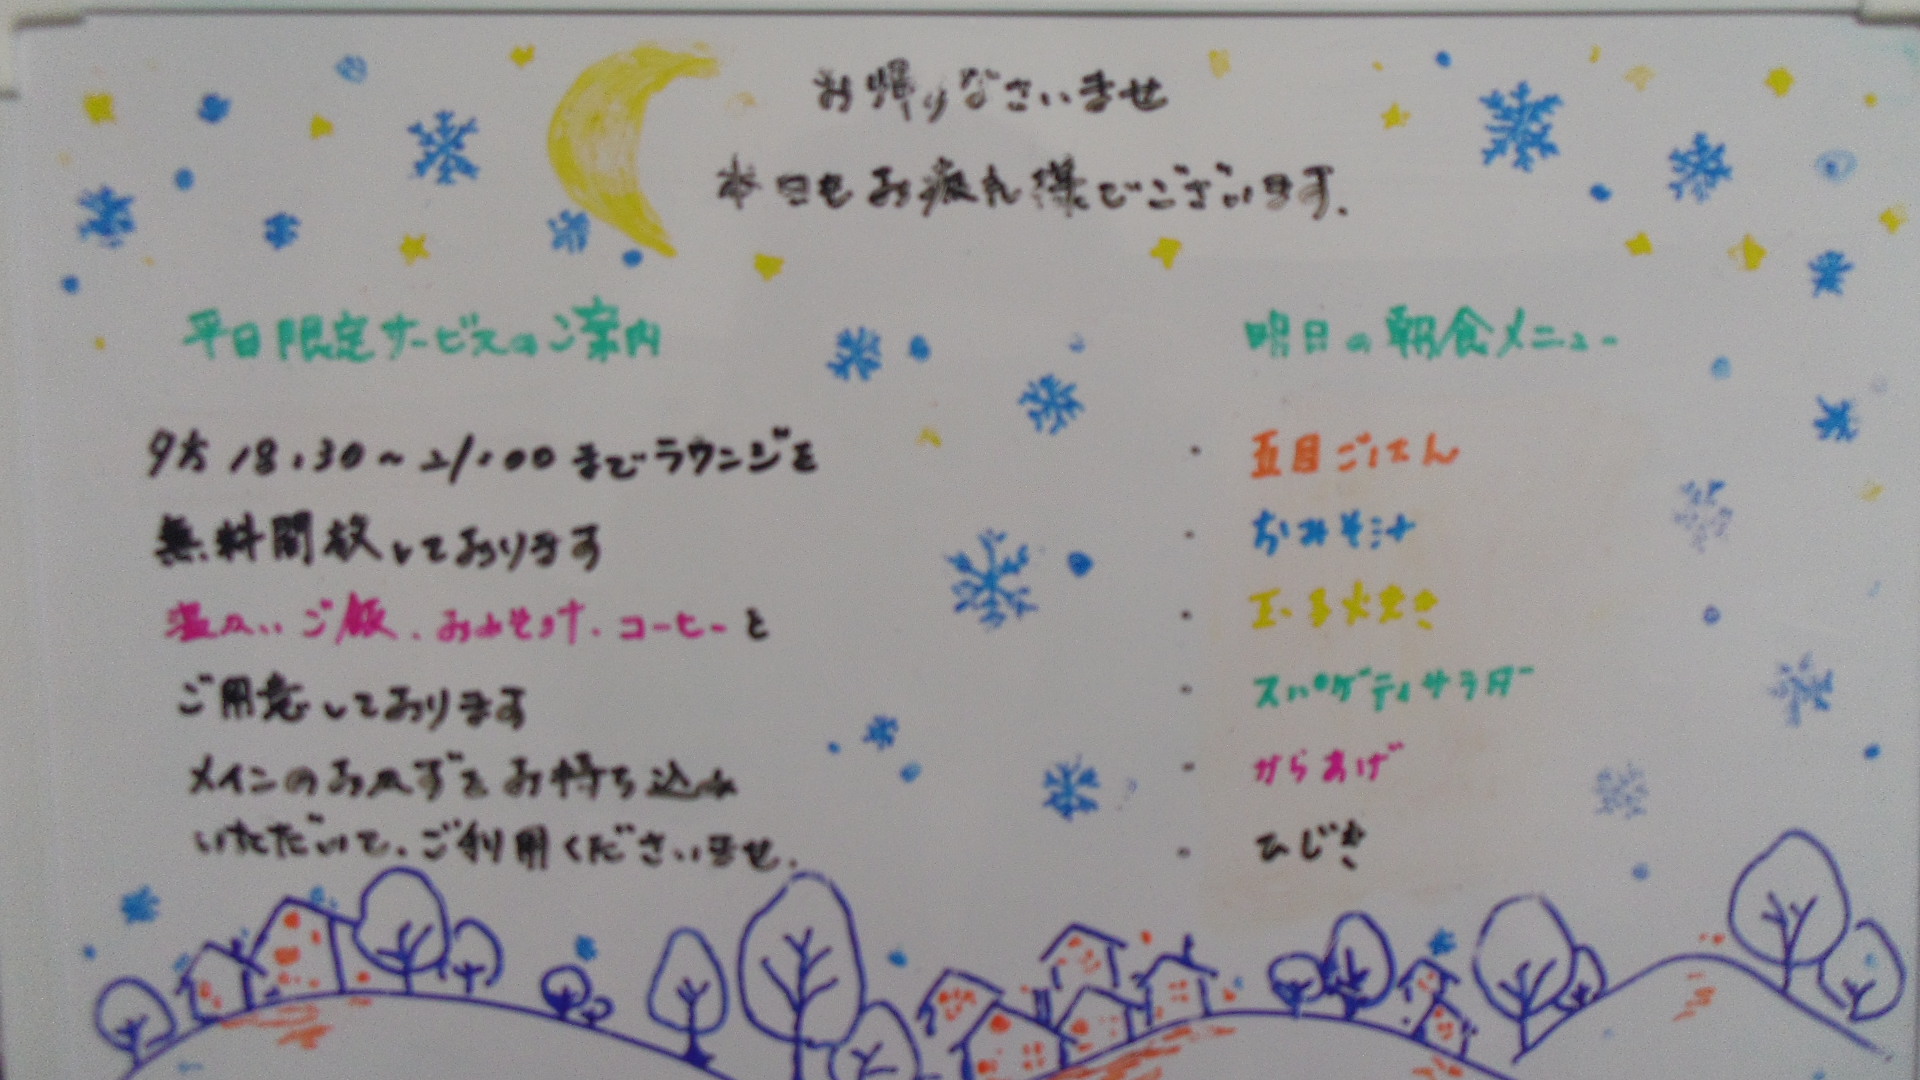 お帰りなさいませ
本日もお疲れ様でございます.
平日限定サービスのご案内
夕方 18:30～21:00 までラウンジを
無料開放しております
温かいご飯、おみそ汁、コーヒーと
ご用意しております
メインのおかずをお持ち込み
いただいて、ご利用くださいませ.
明日の朝食メニュー
・五目ごはん
・おみそ汁
・玉子焼き
・スパゲティサラダー
・からあげ
・ひじき